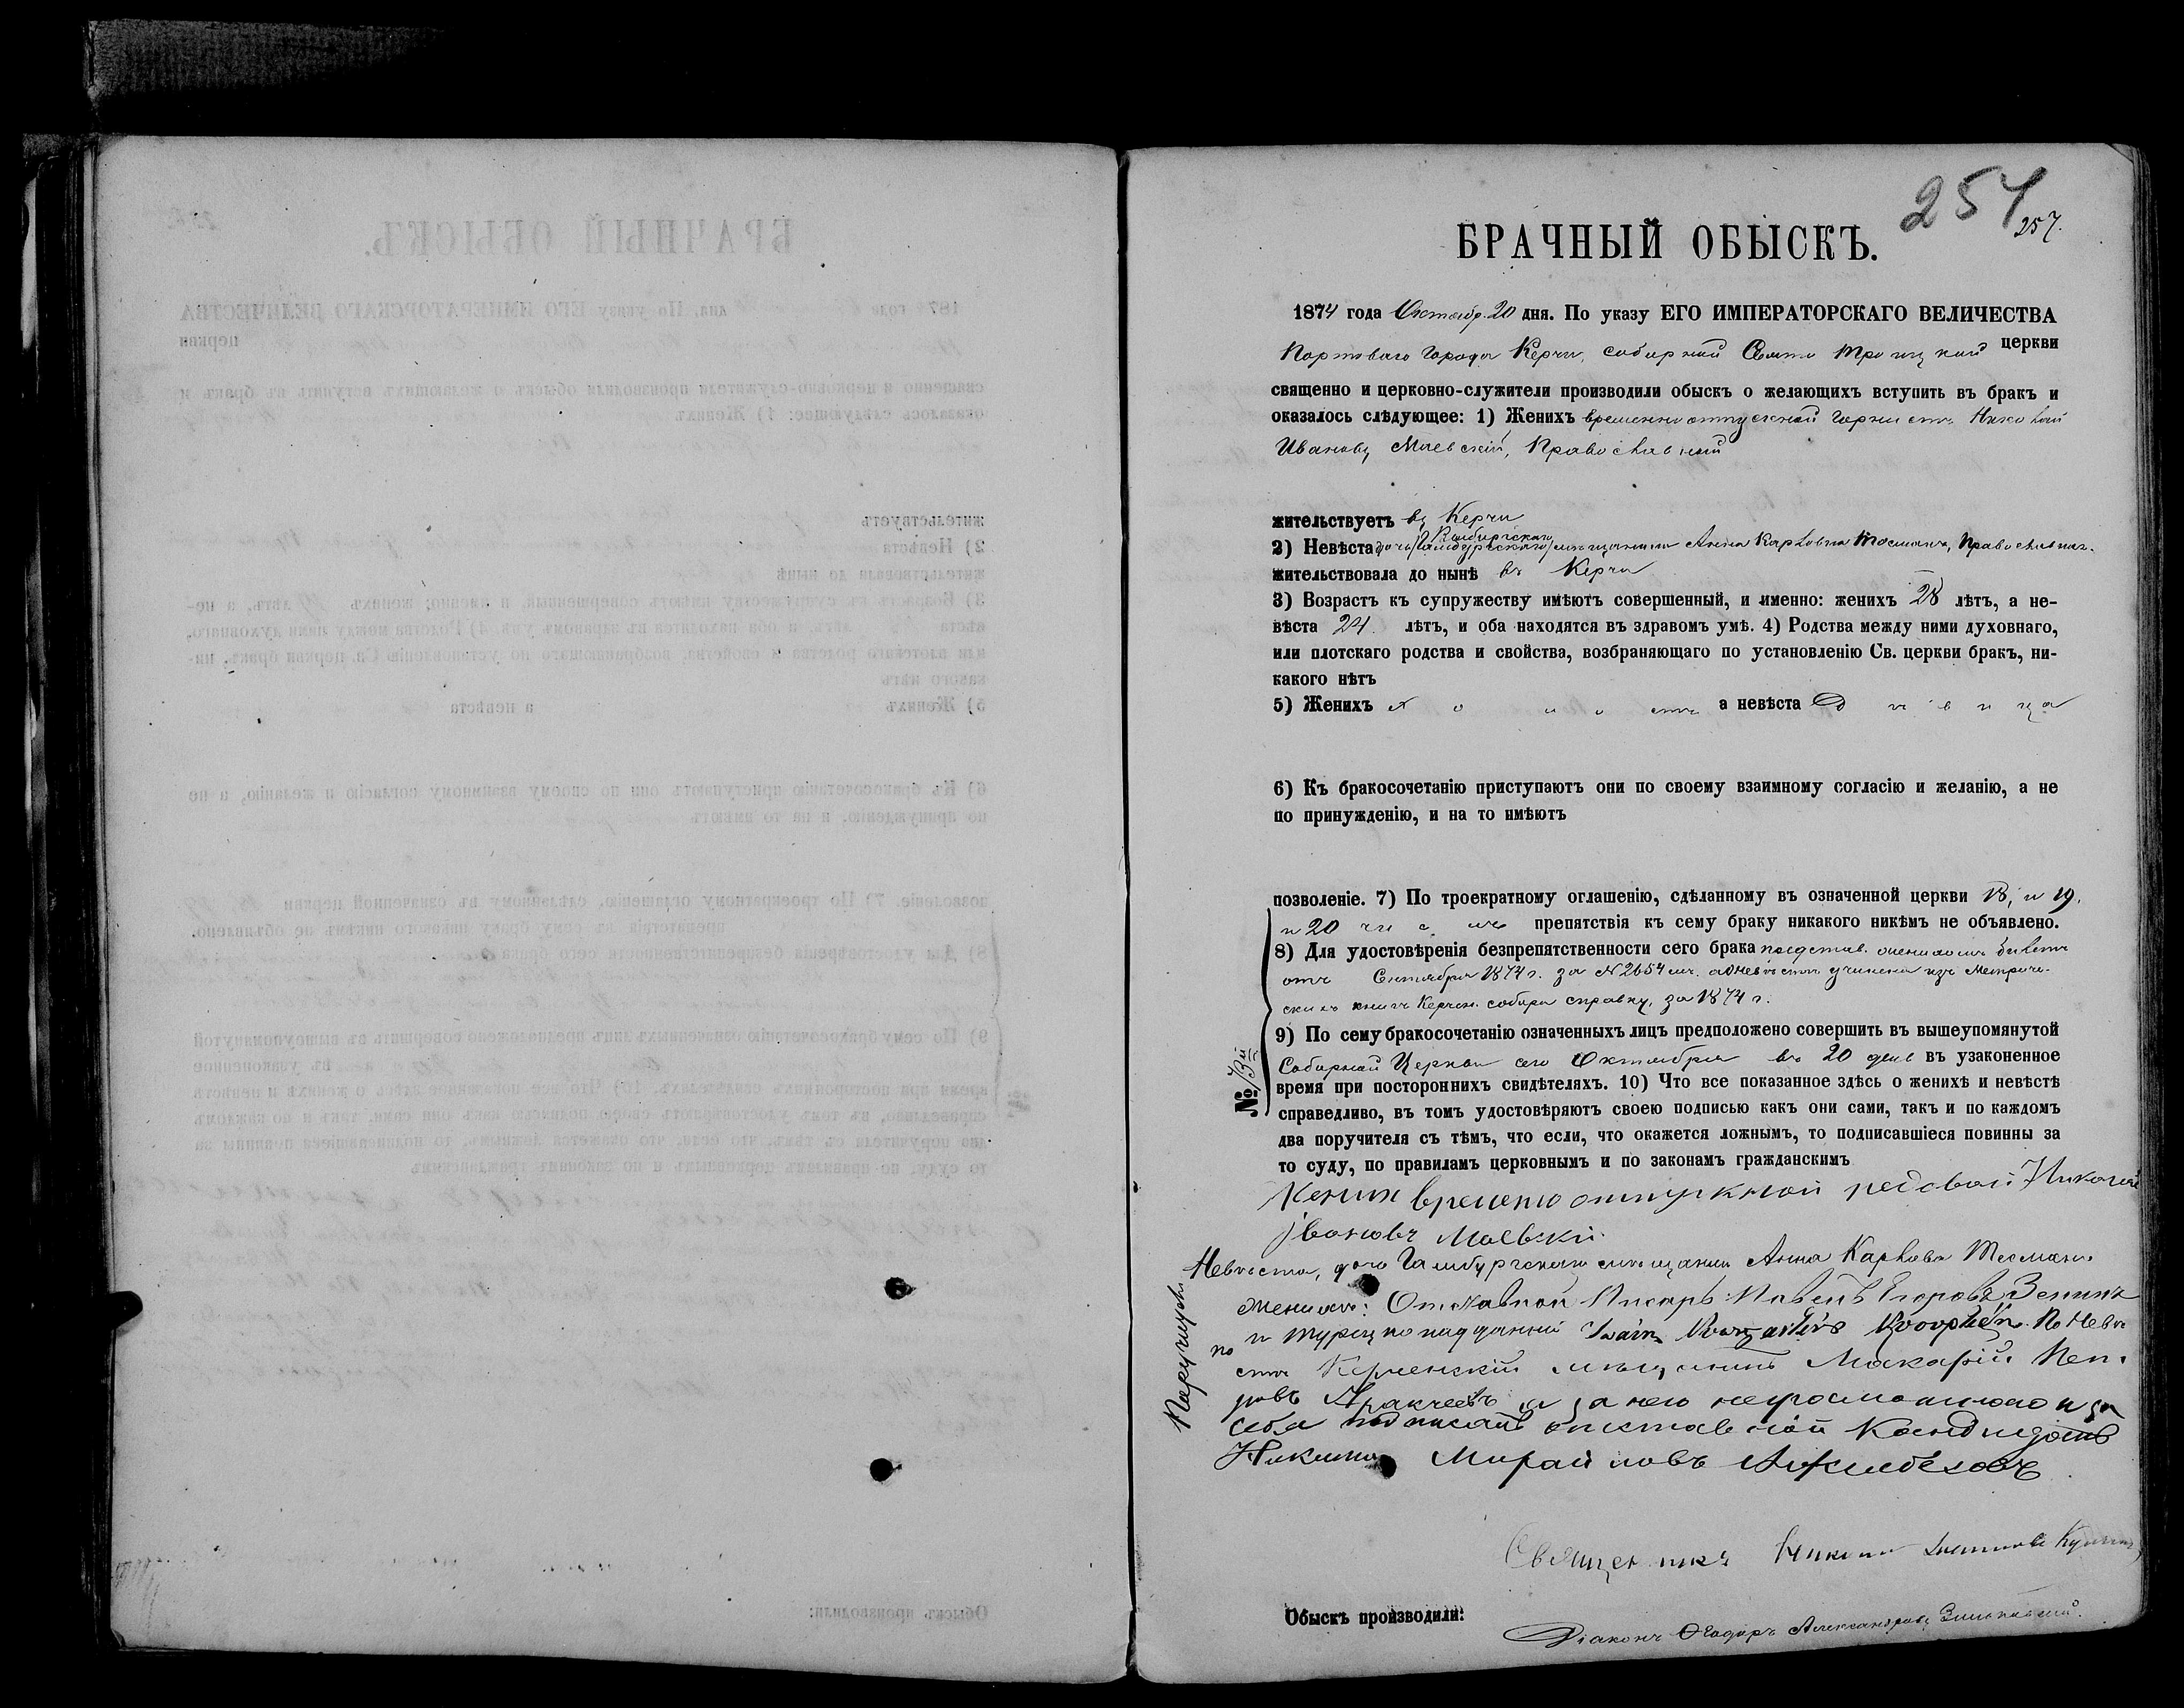 257
257.
БРАЧНЫЙ ОБЫСКЪ.
1874 года Октябр. 20 дня. По указу ЕГО ИМПЕРАТОРСКАГО ВЕЛИЧЕСТВА
Портоваго города Керчи, соборной Свято Троицкой церкви
священно и церковно-служители производили обыскъ о желающихъ вступить въ бракъ и
оказалось слѣдующее: 1) Женихъ временноотпускной горнистъ Николай
Ивановъ Маевскій, Православный
жительствуетъ въ Керчи
2) Невѣста дочь Гамбургскаго мѣщанина Анна Карловна Тесманъ, Православная.
жительствовала до нынѣ въ Керчи
3) Возрастъ къ супружеству имѣютъ совершенный, и именно: женихъ 28 лѣтъ, а не-
вѣста 24. лѣтъ, и оба находятся въ здравомъ умѣ. 4) Родства между ними духовнаго,
или плотскаго родства и свойства, возбраняющаго по установленію Св. церкви бракъ, ни-
какого нѣтъ
5) Женихъ холостъ а невѣста Дѣвица
6) Къ бракосочетанію приступаютъ они по своему взаимному согласію и желанію, а не
по принужденію, и на то имѣютъ
позволеніе. 7) По троекратному оглашенію, сдѣланному въ означенной церкви 18, и 19.
и 20 чис. препятствія къ сему браку никакого никѣмъ не объявлено.
8) Для удостовѣренія безпрепятственности сего брака представ. женихомъ билетъ
отъ Сентября 1874 г. за № 2654 а о невѣстѣ учинена изъ Метриче-
скихъ книгъ Керчен. собора справку, за 1874 г.
9) По сему бракосочетанію означенныхъ лицъ предположено совершить въ вышеупомянутой
Соборной Церкви сего Октября въ 20 день въ узаконенное
время при постороннихъ свидѣтеляхъ. 10) Что все показанное здѣсь о женихѣ и невѣстѣ
справедливо, въ томъ удостовѣряютъ своею подписью какъ они сами, такъ и по каждомъ
два поручителя съ тѣмъ, что если, что окажется ложнымъ, то подписавшіеся повинны за
то суду, по правиламъ церковнымъ и по законамъ гражданскимъ
№
Жених времено отпускной редовой Николай
Івановъ Маевскі
Невѣста, дочь Гамбургскаго мѣщанина Анна Карлова Тесманъ
Поручители
по женихѣ: Отставной Писарь Павелъ Егоровъ Зенинъ
и турецкоподданный По Невѣ
стѣ Керченскій мѣщанинъ Макарій Пет
ровъ Аракчеевъ а за него неграмотнаго и за
себя подписалъ Кандидатъ
Никита
Священникъ
Обыскъ производили:
Діаконъ Ѳеодоръ Александровъ